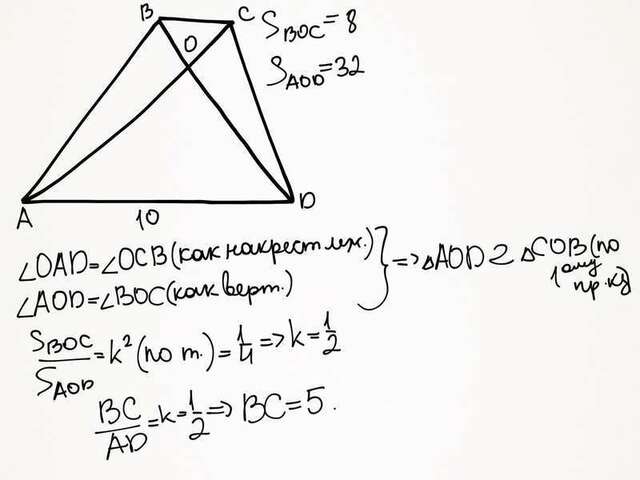 B
C
S_BOC = 8
O
S_AOD = 32
A
10
D
∠OAD = ∠OCB (как накрест леж.)
∠AOD = ∠BOC (как верт.)
} => △AOD ~ △COB (по
1ому
пр.ку)
S_BOC / S_AOD = k² (по т.) = 1/4 => k = 1/2
BC / AD = k = 1/2 => BC = 5.